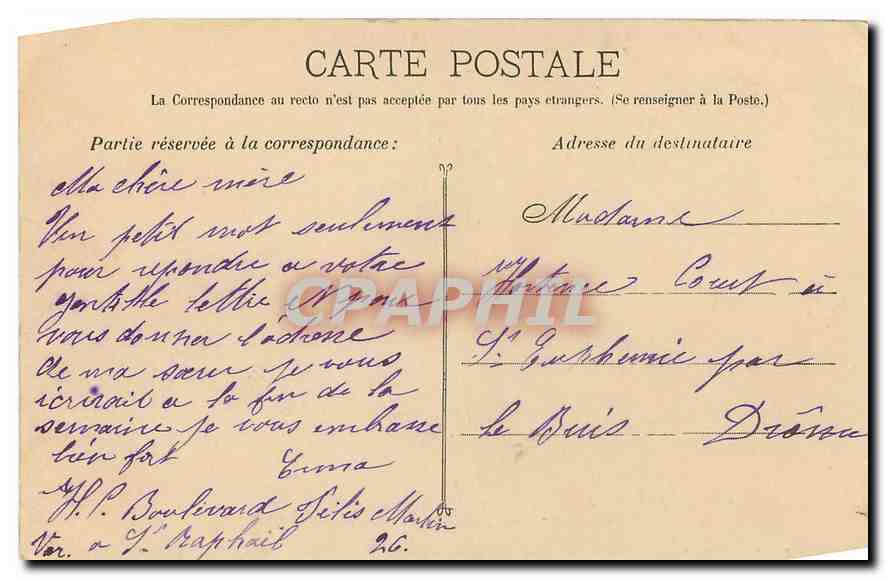 CARTE POSTALE
La Correspondance au recto n'est pas acceptée par tous les pays etrangers. (Se renseigner à la Poste.)
Partie réservée à la correspondance :
Ma chère mère
Un petit mot seulement
pour repondre a votre
gentille lettre et pour
vous donner l'adresse
de ma sœur je vous
icrirait a la fin de la
semaine je vous embrasse
bien fort
H. P. Boulevard Felis Martin
Var. a St Raphaël 26.
Adresse du destinataire
Madame
Hortense Court à
St Euphemie par
le Buis Drôme
CPAPHIL